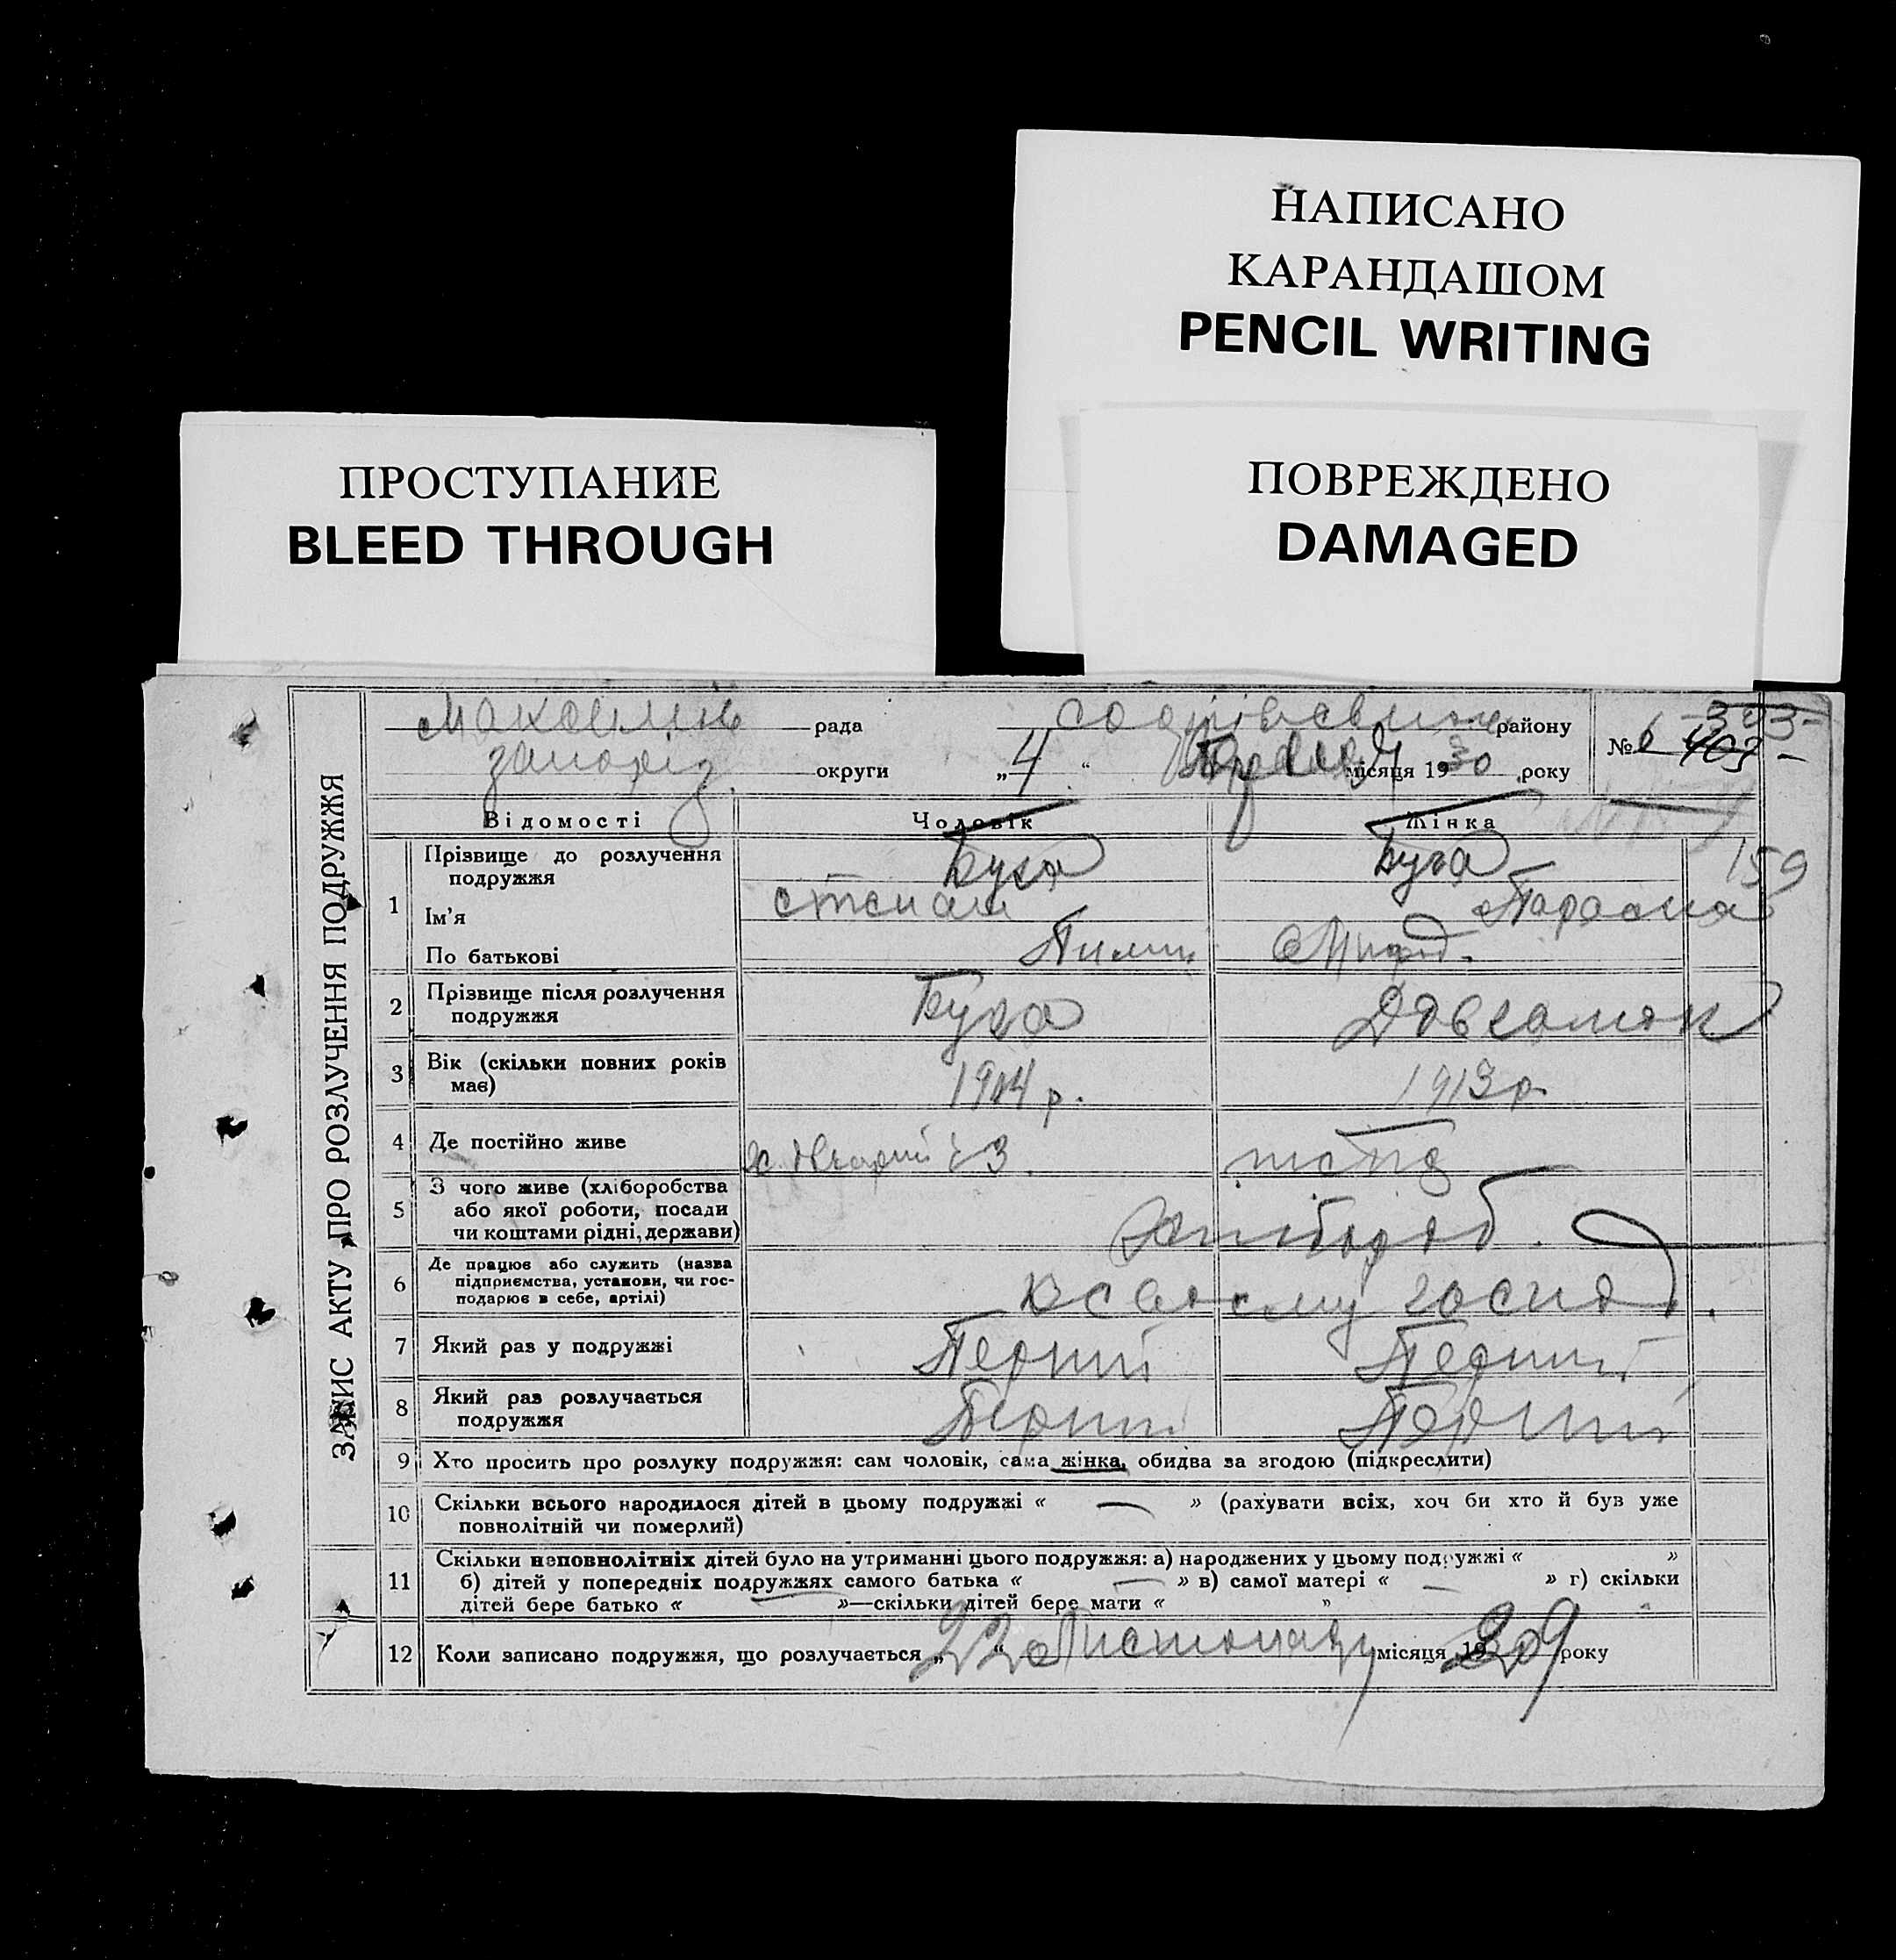 НАПИСАНО
КАРАНДАШОМ
PENCIL WRITING
ПРОСТУПАНИЕ
BLEED THROUGH
ПОВРЕЖДЕНО
DAMAGED
ЗАПИС АКТУ ПРО РОЗЛУЧЕННЯ ПОДРУЖЖЯ
рада району № 6 393
403
округи „4“ місяця 1930 року
Відомості Чоловік Жінка
159
1 Прізвище до розлучення Буга Буга
подружжя
Ім'я Степан Параска
По батькові Пили
2 Прізвище після розлучення Буга
подружжя
3 Вік (скільки повних років 1904 р. 1913 р.
має)
4 Де постійно живе
5 З чого живе (хліборобства
або якої роботи, посади хлібороб.
чи коштами рідні, держави)
6 Де працює або служить (назва
підприємства, установи, чи гос- в своєму господ.
подарює в себе, артілі)
7 Який раз у подружжі Перший Перший
8 Який раз розлучається Перший Перший
подружжя
9 Хто просить про розлуку подружжя: сам чоловік, сама жінка, обидва за згодою (підкреслити)
10 Скільки всього народилося дітей в цьому подружжі « — » (рахувати всіх, хоч би хто й був уже
повнолітній чи померлий)
11 Скільки неповнолітніх дітей було на утриманні цього подружжя: а) народжених у цьому подружжі « »
б) дітей у попередніх подружжях самого батька « — » в) самої матері « — » г) скільки
дітей бере батько « »—скільки дітей бере мати « »
12 Коли записано подружжя, що розлучається „22“ Листопаду місяця 1929 року